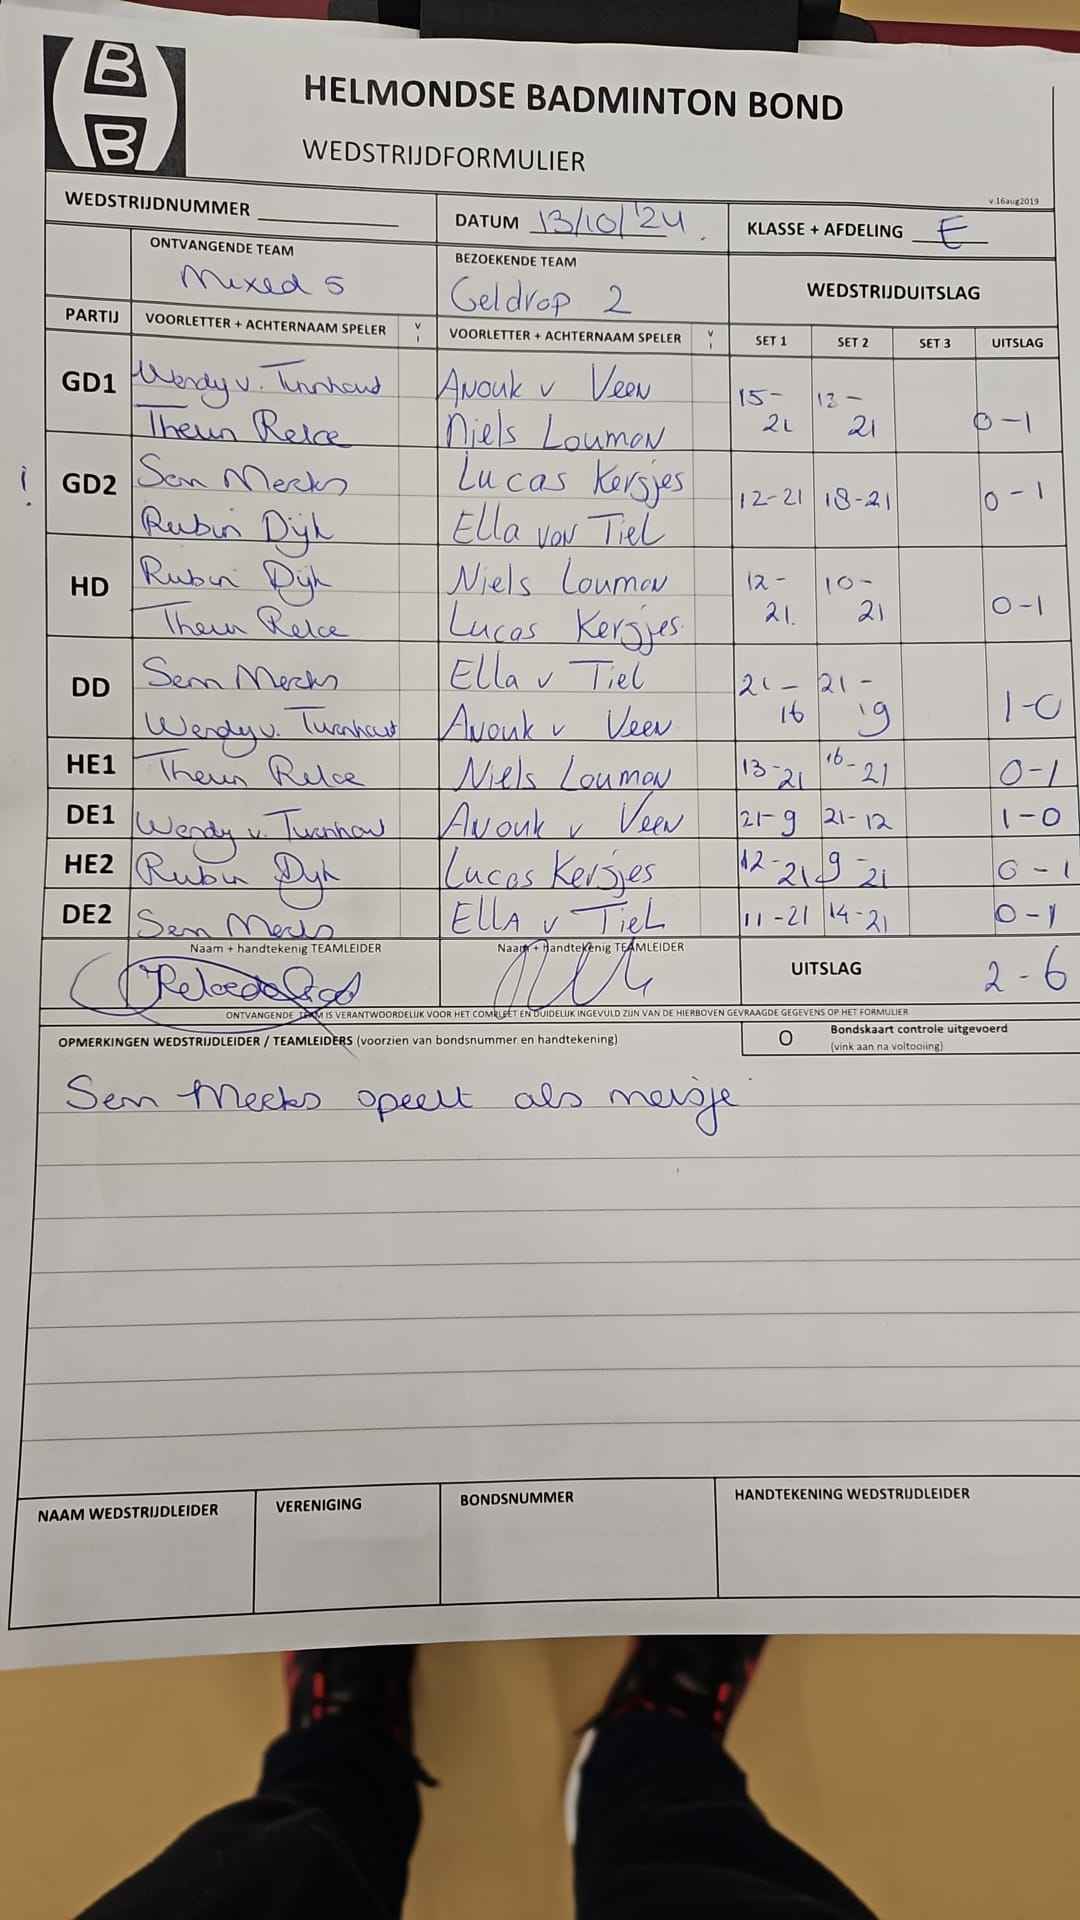 B
B
HELMONDSE BADMINTON BOND
WEDSTRIJDFORMULIER
v.16aug2019
WEDSTRIJDNUMMER
DATUM 13/10/'24
KLASSE + AFDELING E
ONTVANGENDE TEAM
Mixed 5
BEZOEKENDE TEAM
Geldrop 2
WEDSTRIJDUITSLAG
PARTIJ VOORLETTER + ACHTERNAAM SPELER V I VOORLETTER + ACHTERNAAM SPELER V I SET 1 SET 2 SET 3 UITSLAG
GD1 Wendy v. Turnhout Anouk v Veen 15-21 -21 0-1
Theun Relce Niels Louman
! GD2 Sem Meeks Lucas Kersjes 12-21 18-21 0-1
Rubin Dijk Ella van Tiel
HD Rubin Dijk Niels Louman 12-21. 10-21 0-1
Theun Relce Lucas Kersjes
DD Sem Meeks Ella v Tiel 21-16 21-19 1-0
Wendy v. Turnhout Anouk v Veen
HE1 Theun Relce Niels Louman 13-21 16-21 0-1
DE1 Wendy v. Turnhout Anouk v Veen 21-9 21-12 1-0
HE2 Rubin Dyk Lucas Kersjes 12-21 9-21 0-1
DE2 Sem Meeks Ella v Tiel 11-21 14-21 0-1
Naam + handtekenig TEAMLEIDER
Naam + handtekenig TEAMLEIDER
UITSLAG 2-6
ONTVANGENDE TEAM IS VERANTWOORDELIJK VOOR HET COMPLEET EN DUIDELIJK INGEVULD ZIJN VAN DE HIERBOVEN GEVRAAGDE GEGEVENS OP HET FORMULIER
OPMERKINGEN WEDSTRIJDLEIDER / TEAMLEIDERS (voorzien van bondsnummer en handtekening)
O Bondskaart controle uitgevoerd
(vink aan na voltooiing)
Sem Meeks speelt als meisje
NAAM WEDSTRIJDLEIDER
VERENIGING
BONDSNUMMER
HANDTEKENING WEDSTRIJDLEIDER